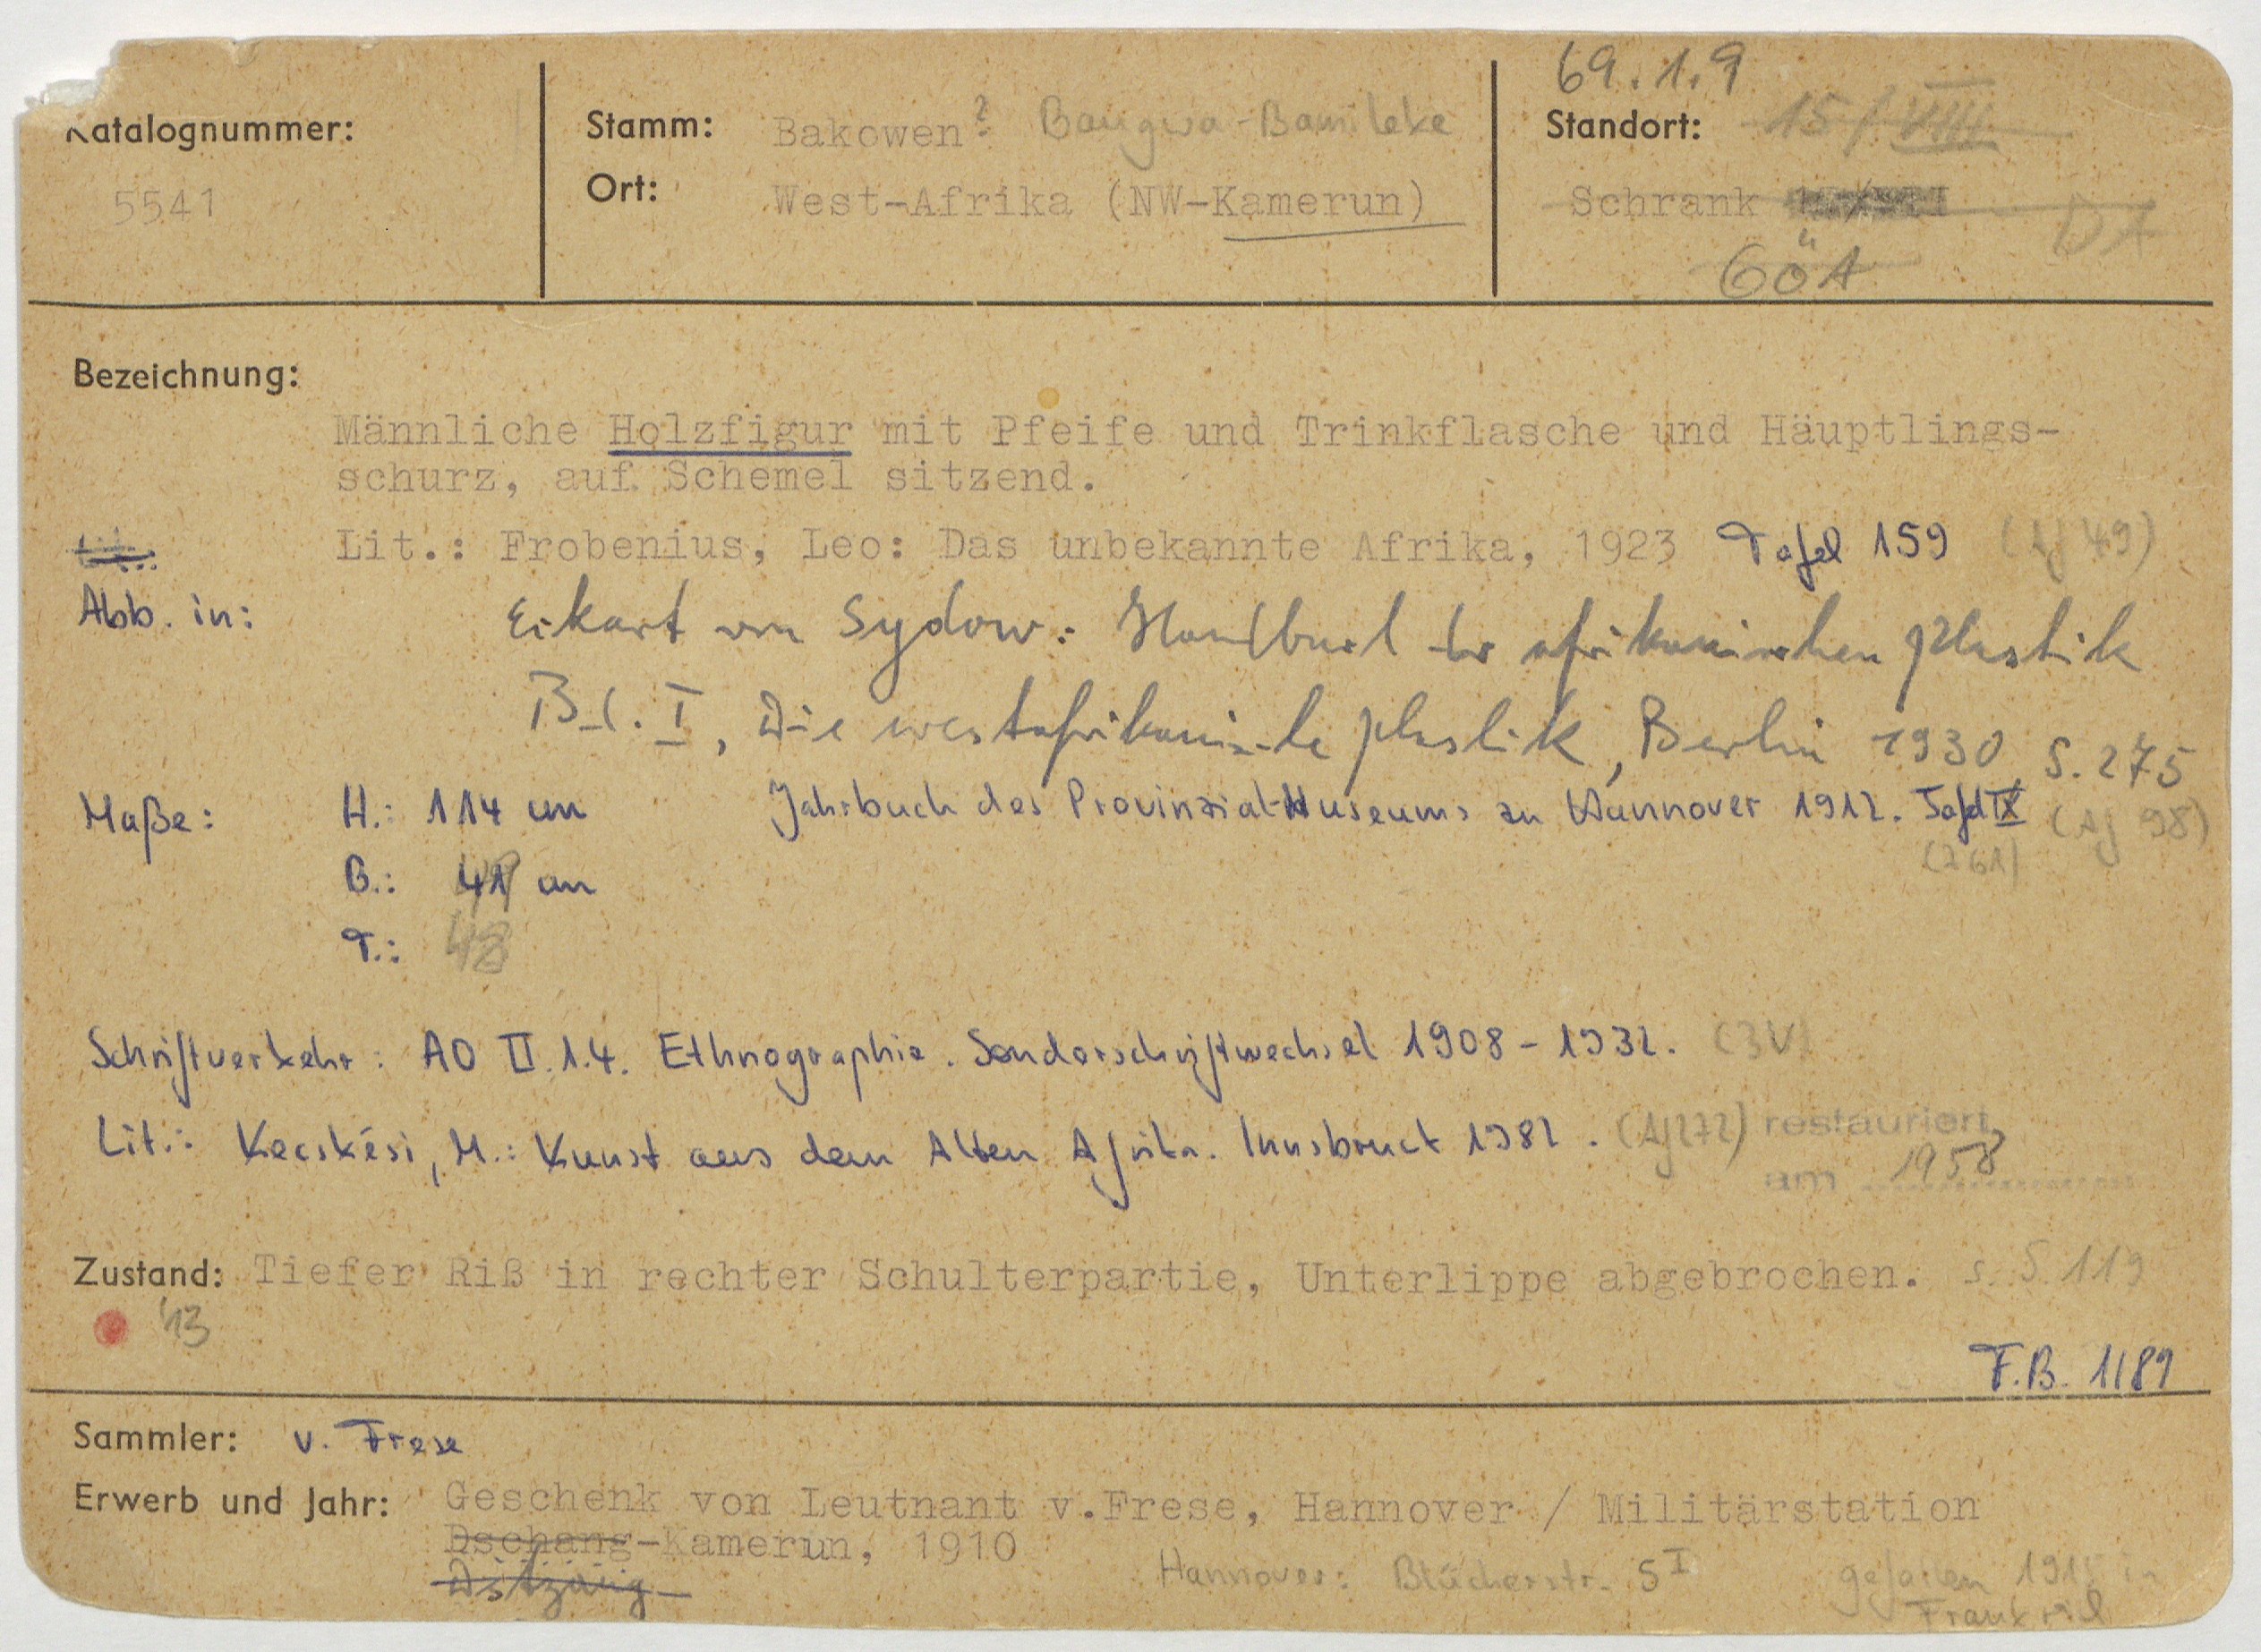 69.1.9
Katalognummer:
5541
Stamm: Bakowen? Bangwa-Bamileke
Ort: West-Afrika (NW-Kamerun)
Standort: 15/VIII
Schrank
GöA
Bezeichnung:
Männliche Holzfigur mit Pfeife und Trinkflasche und Häuptlings-
schurz, auf Schemel sitzend.
Lit.: Frobenius, Leo: Das unbekannte Afrika, 1923 Tafel 159 (Aj 49)
Abb. in: Eckart von Sydow: Handbuch der afrikanischen Plastik
Bd. I, Die westafrikanische Plastik, Berlin 1930, S. 275
Maße: H.: 114 cm Jahrbuch des Provinzial-Museums zu Hannover 1912. Tafel IX (Aj 98)
(261)
B.: 41 cm
T.: 48
Schriftverkehr: AO II.1.4. Ethnographie. Sonderschriftwechsel 1908-1932. (3V)
Lit.: Kecskési, M.: Kunst aus dem Alten Afrika. Innsbruck 1982. (Aj272) restauriert
am 1958
Zustand: Tiefer Riß in rechter Schulterpartie, Unterlippe abgebrochen. s. S. 119
43
F.B. 1189
Sammler: v. Frese
Erwerb und Jahr: Geschenk von Leutnant v.Frese, Hannover / Militärstation
Dschang-Kamerun, 1910
Hannover: Blücherstr. 5 I gefallen in
Frankreich